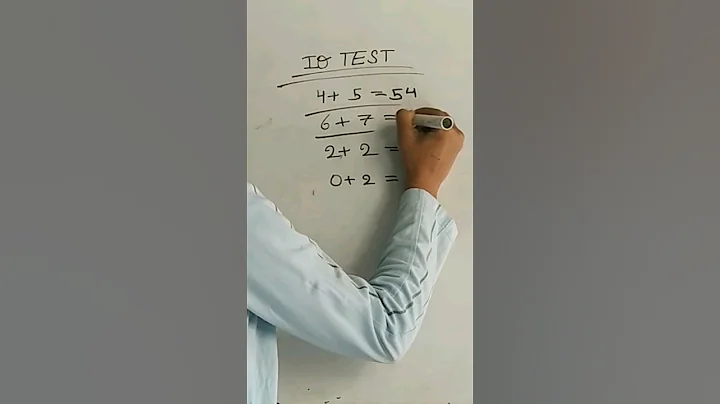 IQ TEST
4+ 5 = 54
6 + 7 =
2+ 2 =
0+ 2 =